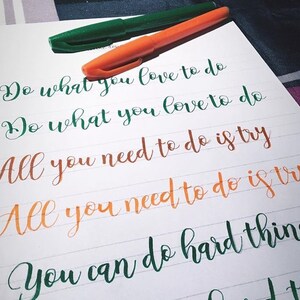 Do what you love to do
Do what you love to do
All you need to do is try
All you need to do is try
You can do hard thin